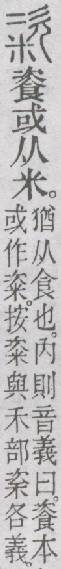 粢餈或从米。
猶从食也。內則音義曰。餈本
或作粢。按粢與禾部秶各義。